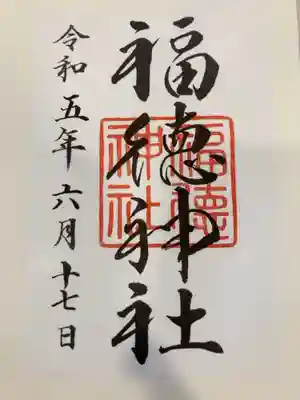 福徳神社
福徳
神社
令和五年六月十七日